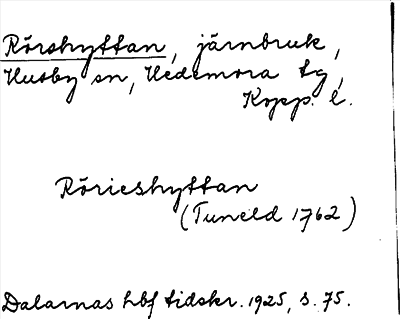 Rörshyttan, järnbruk,
Husby sn, Hedemora tg,
Kopp. l.
Rörieshyttan
(Tuneld 1762)
Dalarnas hbf tidskr. 1925, s. 75.